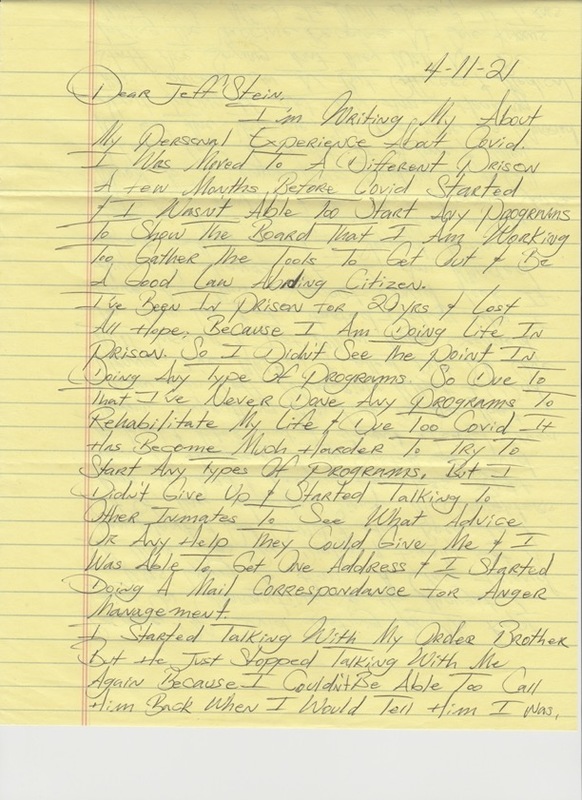 4-11-21
Dear Jeff Stein.
I'm Writing My About
My Personal Experience About Covid.
I Was Moved To A Different Prison
A Few Months Before Covid Started
& I Wasn't Able Too Start Any Programs
To Show The Board That I Am Working
Too Gather The Tools To Get Out & Be
A Good Law Abiding Citizen.
I've Been In Prison for 20 yrs & Lost
All Hope. Because I Am Doing Life In
Prison. So I Didn't See the Point In
Doing Any Type Of Programs. So Due To
That I've Never Done Any Programs To
Rehabilitate My Life & Due Too Covid It
Has Become Much Harder To Try To
Start Any Types Of Programs. But I
Didn't Give Up & Started Talking To
Other Inmates To See What Advice
Or Any Help They Could Give Me & I
Was Able To Get One Address & I Started
Doing A Mail Correspondance for Anger
Management.
I Started Talking With My Order Brother
But He Just Stopped Talking With Me
Again Because I Couldn't Be Able Too Call
Him Back When I Would Tell Him I Was,